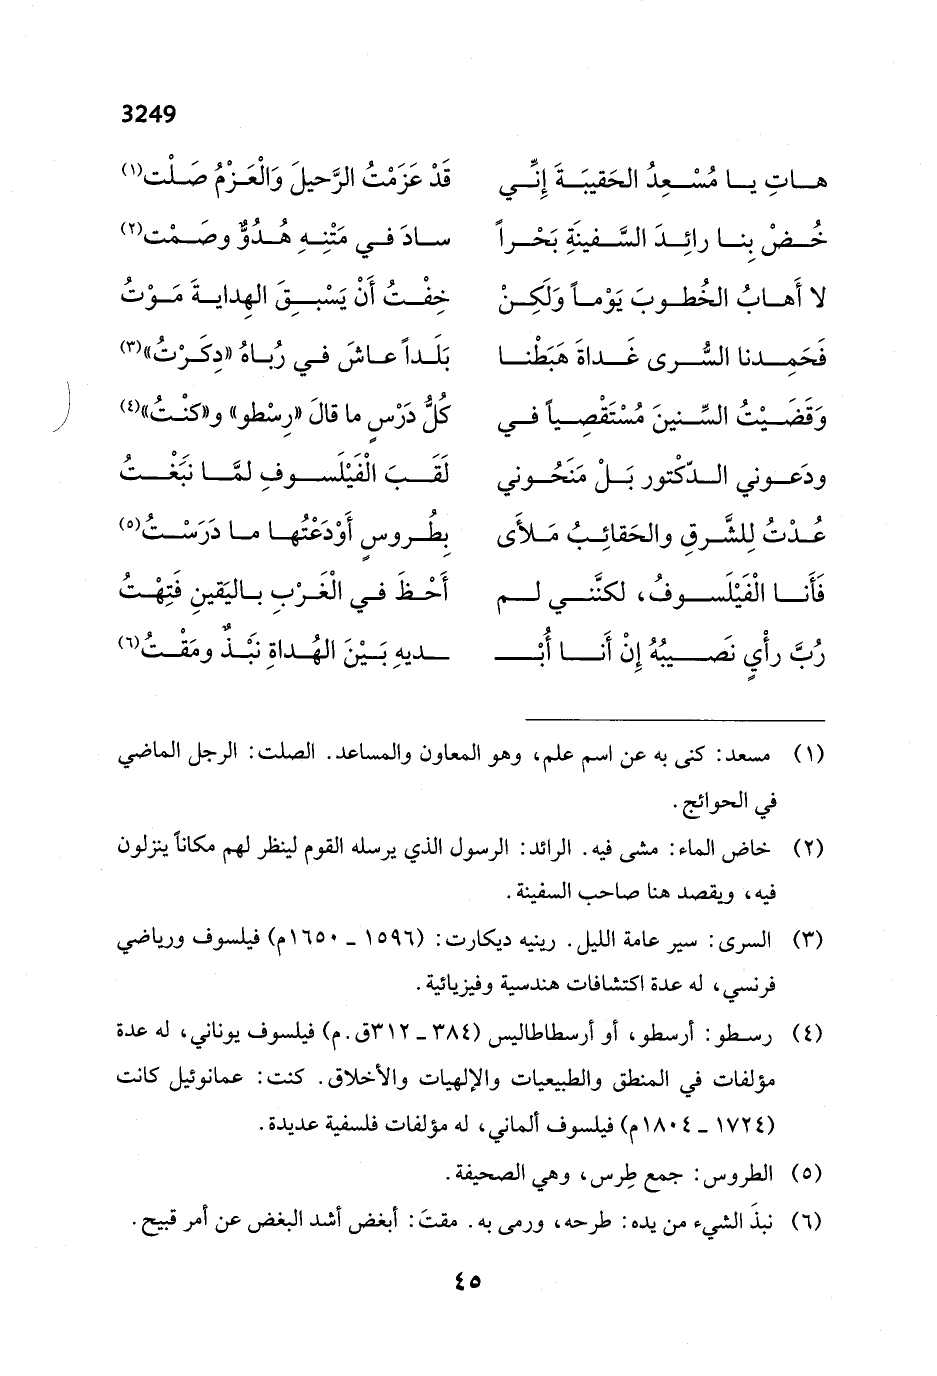 3249
هاتِ يا مُسْعِدُ الحَقيبَةَ إنِّي قَدْ عَزَمْتُ الرَّحيلَ وَالْعَزْمُ صَلْت(١)
خُضْ بِنا رائِدَ السَّفينَةِ بَحْراً سادَ في مَتْنِهِ هُدُوٌّ وصَمْت(٢)
لا أهابُ الخُطوبَ يَوْماً وَلَكِنْ خِفْتُ أَنْ يَسْبِقَ الهِدايةَ مَوْتُ
فَحَمِدنا السُّرى غَداةَ هَبَطْنا بَلَداً عاشَ في رُباهُ «دِكَرْتُ»(٣)
وَقَضَيْتُ السِّنينَ مُسْتَقْصِياً في كُلِّ دَرْسٍ ما قالَ «رِسْطو» و«كَنْتُ»(٤)
ودَعَوني الدّكْتور بَلْ مَنَحُوني لَقَبَ الْفَيْلَسوفِ لمَّا نَبَغْتُ
عُدْتُ لِلشَّرقِ والحَقائِبُ مَلأى بِطُروسٍ أَوْدَعْتُها ما دَرَسْتُ(٥)
فَأَنا الْفَيْلَسوفُ، لكنَّني لم أَحْظَ في الْغَرْبِ باليَقينِ فَتِهْتُ
رُبَّ رأْيٍ نَصيبُهُ إنْ أَنا أُبْـ ـديهِ بَيْنَ الهُداةِ نَبْذٌ ومَقْتُ(٦)
(١) مسعد: كنى به عن اسم علم، وهو المعاون والمساعد. الصلت: الرجل الماضي
في الحوائج.
(٢) خاض الماء: مشى فيه. الرائد: الرسول الذي يرسله القوم لينظر لهم مكاناً ينزلون
فيه، ويقصد هنا صاحب السفينة.
(٣) السرى: سير عامة الليل. رينيه ديكارت: (١٥٩٦ - ١٦٥٠م) فيلسوف ورياضي
فرنسي، له عدة اكتشافات هندسية وفيزيائية.
(٤) رسطو: أرسطو، أو أرسطاطاليس (٣٨٤ - ٣١٢ق.م) فيلسوف يوناني، له عدة
مؤلفات في المنطق والطبيعيات والإلهيات والأخلاق. كنت: عمانوئيل كانت
(١٧٢٤ - ١٨٠٤م) فيلسوف ألماني، له مؤلفات فلسفية عديدة.
(٥) الطروس: جمع طِرس، وهي الصحيفة.
(٦) نبذَ الشيء من يده: طرحه، ورمى به. مقتَ: أبغض أشد البغض عن أمر قبيح.
٤٥